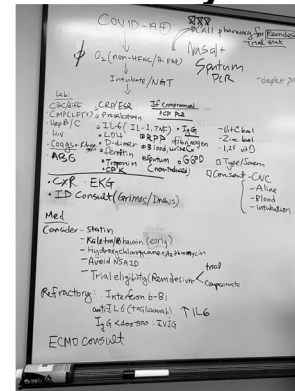 COVID-19 (+)
Call pharmacy for Remdes
Trial stat
Nasal +
Sputum
PCR
O2 (non-HFNC/BiPAP)
Intubate/NGT
Lab:
CBC/diff
CMP(LFT)
Hep B/C
HIV
ABG
CRP/ESR
Procalcitonin
IL-6 (IL-1, TNF)
LDH
D-dimer
Ferritin
Troponin
CPK
If compromised
PCP PCR
IgG
RPP
fibrinogen
Blood, urine Cx
Sputum
(non induced)
G6PD
Vit C level
Zinc level
1,25 vit D
Type/Screen
Consent - CVC
- Aline
- Blood
- intubation
CXR EKG
ID Consult (Grimes/Dinejs)
Med
Consider - statin
- Kaletra/Ribavirin (early)
- Hydroxychloroquine + Azithromycin
- Avoid NSAID
- Trial eligibility (Remdesivir)
trial
Compassionate
Refractory: Interferon b-B1
anti IL6 (tocilizumab) ↑ IL6
IgG <400-500: IVIG
ECMO consult